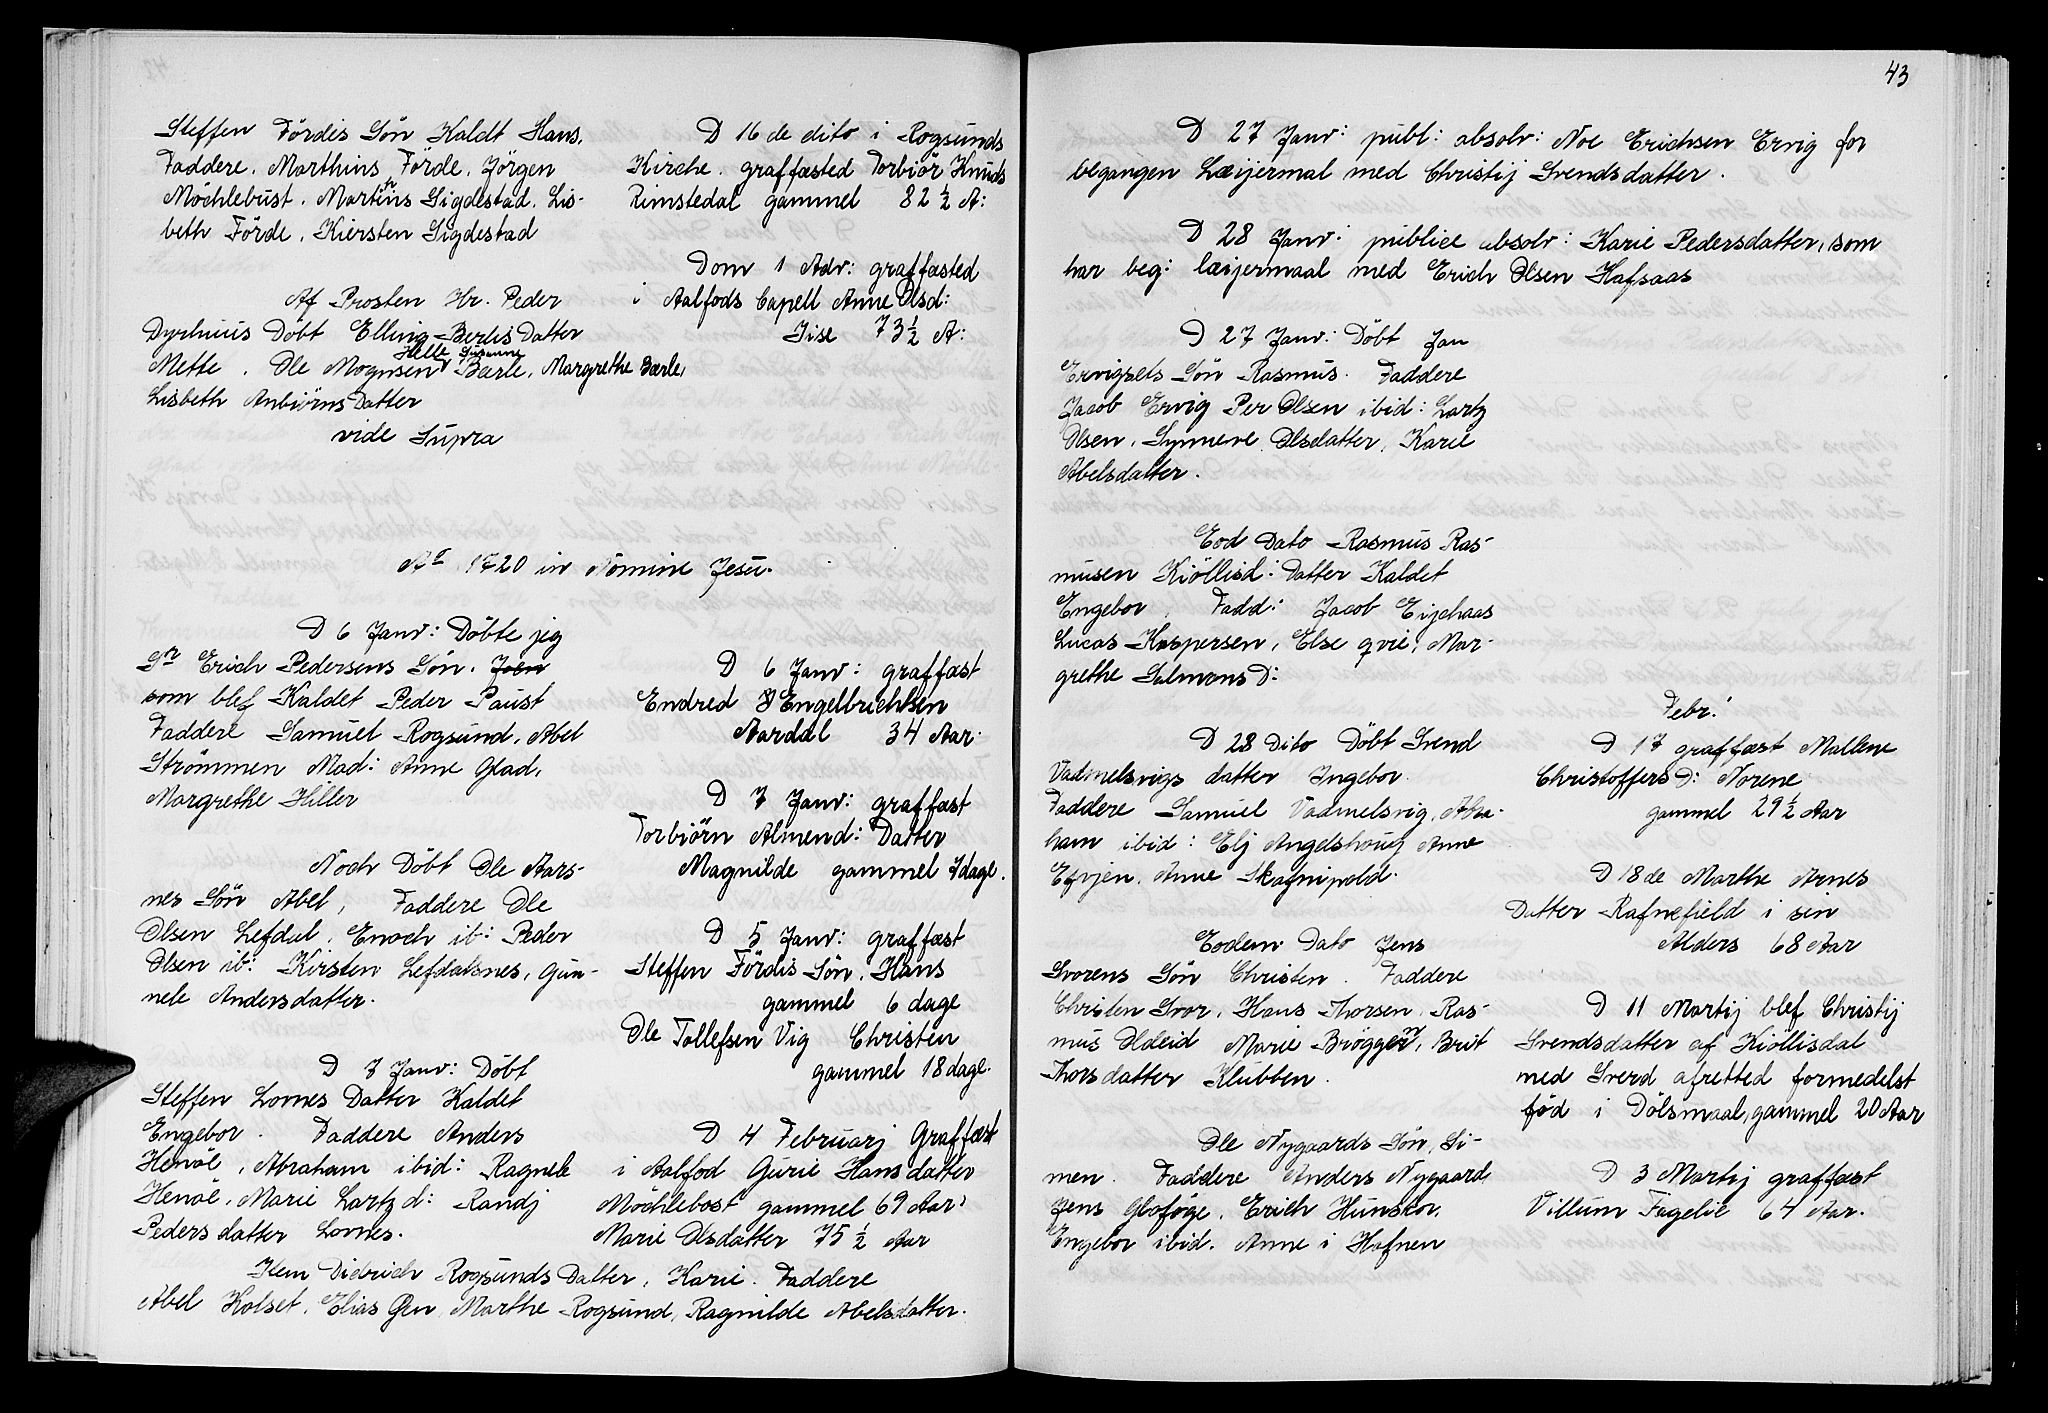 Steffen Fördis Sön Kaldt Hans.
Faddere. Marthins Förde. Jörgen
Möchlebust. Martins Sigdestad. Lis-
beth Förde. Kiersten Sigdestad
Af Prosten Hr. Peder
Dyrhuus Döbt Elling Berlis Datter
Helle Susanne
Mette. Ole Mognsen Bærle, Margrethe Bærle,
Lisbeth Anbiörns Datter
vide Supra
D 16 de dito i Rogsunds
Kirche. graffæsted Torbiör Knuds
Rimstedal gammel 82 ½ A:
Dom 1 Adv: graffæsted
i Aalfods Capell Anne Olsd:
Jise 73 ½ A:
Aº 1720 in Nomine Jesu.
D 6 Janv: Döbte jeg
Sr Erich Pedersens Sön. Joen
som blef Kaldet Peder Paust
Faddere Samuel Rogsund, Abel
Strømmen Mad: Anne Glad,
Margrethe Hiller
Noch Döbt Ole Aars-
nes Sön Abel, Faddere Ole
Olsen Lefdal, Enoch ib: Peder
Olsen ib: Kirsten Lefdalsnes, Gun-
nele Andersdatter.
D 7 Janv: Döbt
Steffen Lornes Datter Kaldet
Engebor. Faddere Anders
Henöe, Abraham ibid: Ragnele
Henöe, Marie Lartz d: Randj
Peders datter Lornes.
Item Didrich Rogsunds Datter, Karie. Faddere
Abel Holset, Elias Øen, Marthe Rogsund, Ragnilde Abelsdatter.
D 6 Janv: graffæst
Endred Engelbrichtsen
Aardal 34 Aar.
D 7 Janv: graffæst
Torbiörn Almend: Datter
Magnilde gammel 7dage.
D 5 Janv: graffæst
Steffen Fördis Sön. Hans
gammel 6 dage
Ole Tollefsen Vig Christen
gammel 18 dage.
D 4 Februarj Graffæst
i Aalfod Gurie Hansdatter
Möchlebost gammel 69 Aar,
Marie Olsdatter 75 ½ Aar
43
D 27 Janv: publ: absolv: Noe Erichsen Ervig for
begangen Læijermal med Christij Svendsdatter.
D 28 Janv: publice absolv: Karie Pedersdatter, som
har beg: læijermaal med Erich Olsen Hafsaas
D 27 Janv: Döbt Jan
Ervigsets Sön Rasmus. Faddere
Jacob Ervig Per Olsen ibid: Lartz
Olsen, Synneve Olsdatter, Karie
Abelsdatter.
Eod Dato Rasmus Ras-
musen Kiöllisd: Datter Kaldet
Engebor. Fadd: Jacob Eijehaas
Lucas Kaspersen, Else qvie, Mar-
grethe Salmons D:
D 28 Dito Döbt Svend
Vadmelsvigs datter Ingebor.
Faddere Samuel Vadmelsvig, Abra-
ham ibid: Elj Angelshoug Anne
Efvjen, Anne Skafnipold.
Eodem Dato Jens
Svorens Sön Christen. Faddere
Christen Svor, Hans Thorsen, Ras-
mus Oldeid Marie Brøgger, Brit
Thorsdatter Klubben.
Ole Nygaards Sön, Si-
men. Faddere Anders Nygaard,
Jens Gloføge, Erich Hunskor,
Engebor ibid. Anne i Hafnen
Febr:
D 17 graffæst Mallene
Christoffers D: Norene
gammel 29 ½ Aar
D 18 de Marthe Arnes
Datter Rafnefield i sin
Alders 68 Aar
D 11 Martij blef Christij
Svendsdatter af Kiöllisdal
med Sverd afretted formedelst
fød i Dölsmaal, gammel 20 Aar
D 3 Martij graffæst
Villum Fagelie 64 Aar.